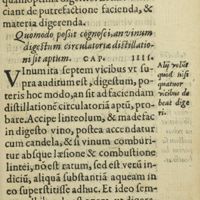 ciant de putrefactione facienda, &
materia digerenda.
Quomodo possit cognosci, an vinum
digestum circulatoriæ distillatio-
ni sit aptum. CAP. IIII.
VInum ita septem vicibus vt su-
pra auditum est, digestum, po-
teris hoc modo, an sit ad faciendam
distillationẽ circulatoriã aptũ, pro-
bare. Accipe linteolum, & madefac
in digesto vino, postea accendatur
cum candela, & si vinum comburi-
tur absque læsione & combustione
lintei, nõ est ratum, sed est verũ in-
diciũ, aliquã substantiã aqueam in
eo superstitisse adhuc. Et ideo sem-
Alij volũt
quod nisi
quatuor
vicibus de
beat dige
ri.